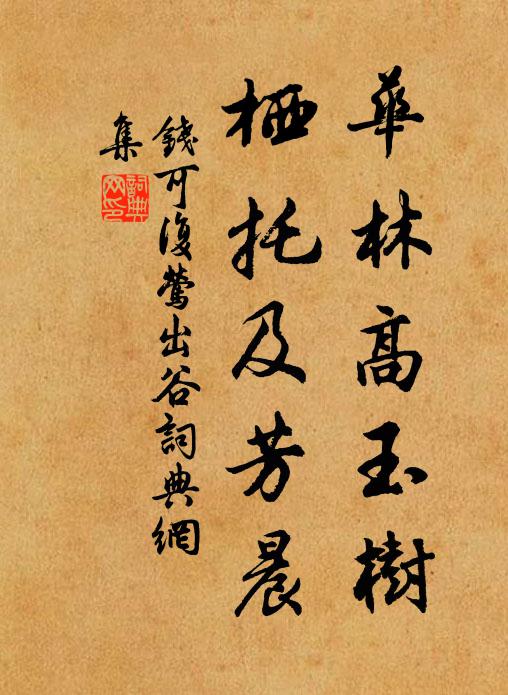 華林高玉樹
栖托及芳晨
錢可復鶯出谷詞典網
集
詞典
网印